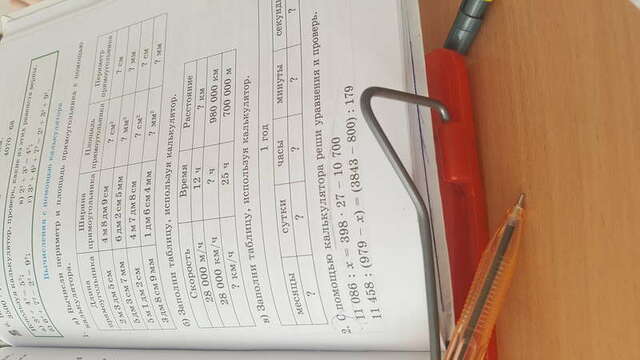 4070 68
калькулятор, проверь, какие из этих равенств верны
Вычисления с помощью калькулятора
а) Вычисли периметр и площадь прямоугольника с помощью
калькулятора.
Длина прямоугольника Ширина прямоугольника Площадь прямоугольника Периметр прямоугольника
4 м 8 дм 9 см ? см² ? см
2 м 3 дм 5 см 6 дм 2 см 5 мм ? мм² ? мм
5 дм 3 см 7 мм 4 м 7 дм 8 см ? см² ? см
5 м 1 дм 2 см 1 дм 6 см 4 мм ? мм² ? мм
3 дм 8 см 9 мм
б) Заполни таблицу, используя калькулятор.
Скорость Время Расстояние
28 000 м/ч 12 ч ? км
28 000 км/ч ? ч 980 000 км
? км/ч 25 ч 700 000 м
в) Заполни таблицу, используя калькулятор.
1 год
месяцы сутки часы минуты секунды
? ? ? ? ?
2. С помощью калькулятора реши уравнения и проверь.
11 086 : x = 398 · 27 − 10 700
11 458 : (979 − x) = (3843 − 800) : 179